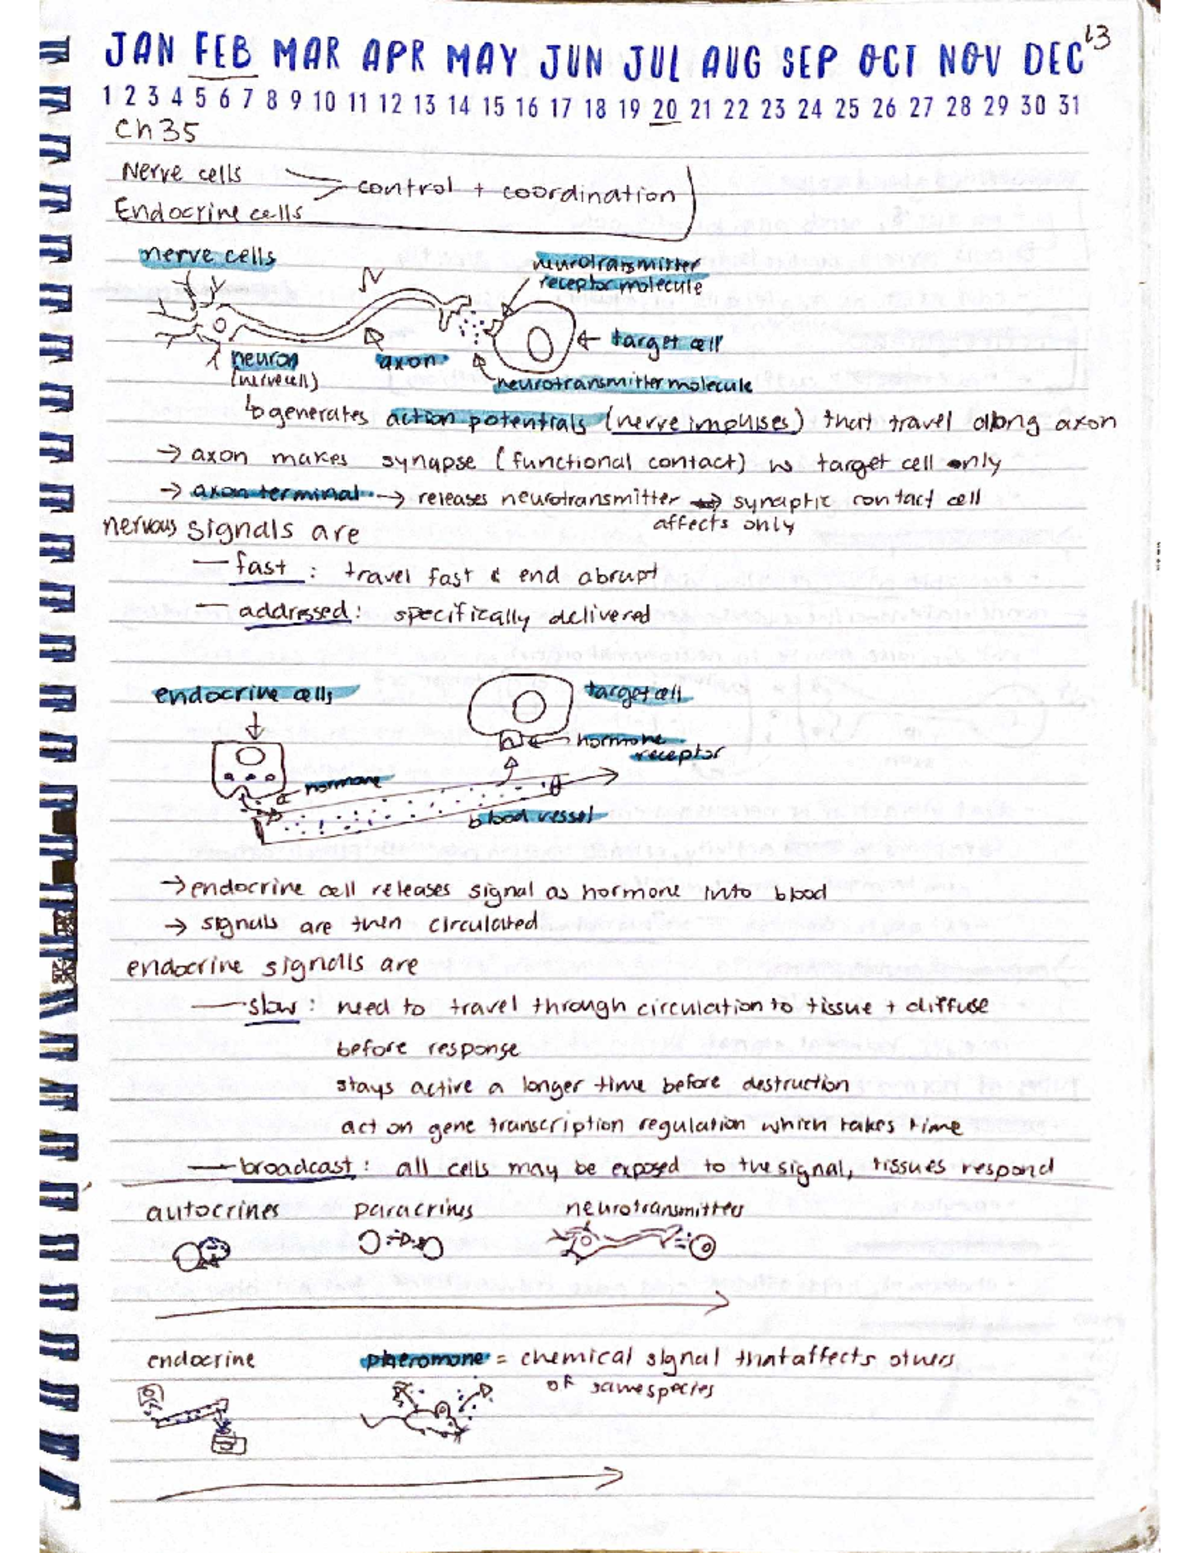 13
JAN FEB MAR APR MAY JUN JUL AUG SEP OCT NOV DEC
1 2 3 4 5 6 7 8 9 10 11 12 13 14 15 16 17 18 19 20 21 22 23 24 25 26 27 28 29 30 31
Ch 35
Nerve cells
Endocrine cells
control + coordination
nerve cells
neurotransmitter
receptor molecule
target cell
neuron
(nerve cell)
axon
neurotransmitter molecule
generates action potentials (nerve impulses) that travel along axon
→ axon makes synapse (functional contact) w target cell only
→ axon terminal → releases neurotransmitter → synaptic contact cell
affects only
nervous signals are
— fast : travel fast & end abrupt
— addressed : specifically delivered
endocrine cells
target cell
hormone
receptor
hormone
blood vessel
→ endocrine cell releases signal as hormone into blood
→ signals are then circulated
endocrine signals are
— slow : need to travel through circulation to tissue + diffuse
before response
stays active a longer time before destruction
act on gene transcription regulation which takes time
— broadcast : all cells may be exposed to the signal, tissues respond
autocrines paracrins neurotransmitters
endocrine pheromone = chemical signal that affects others
of same species